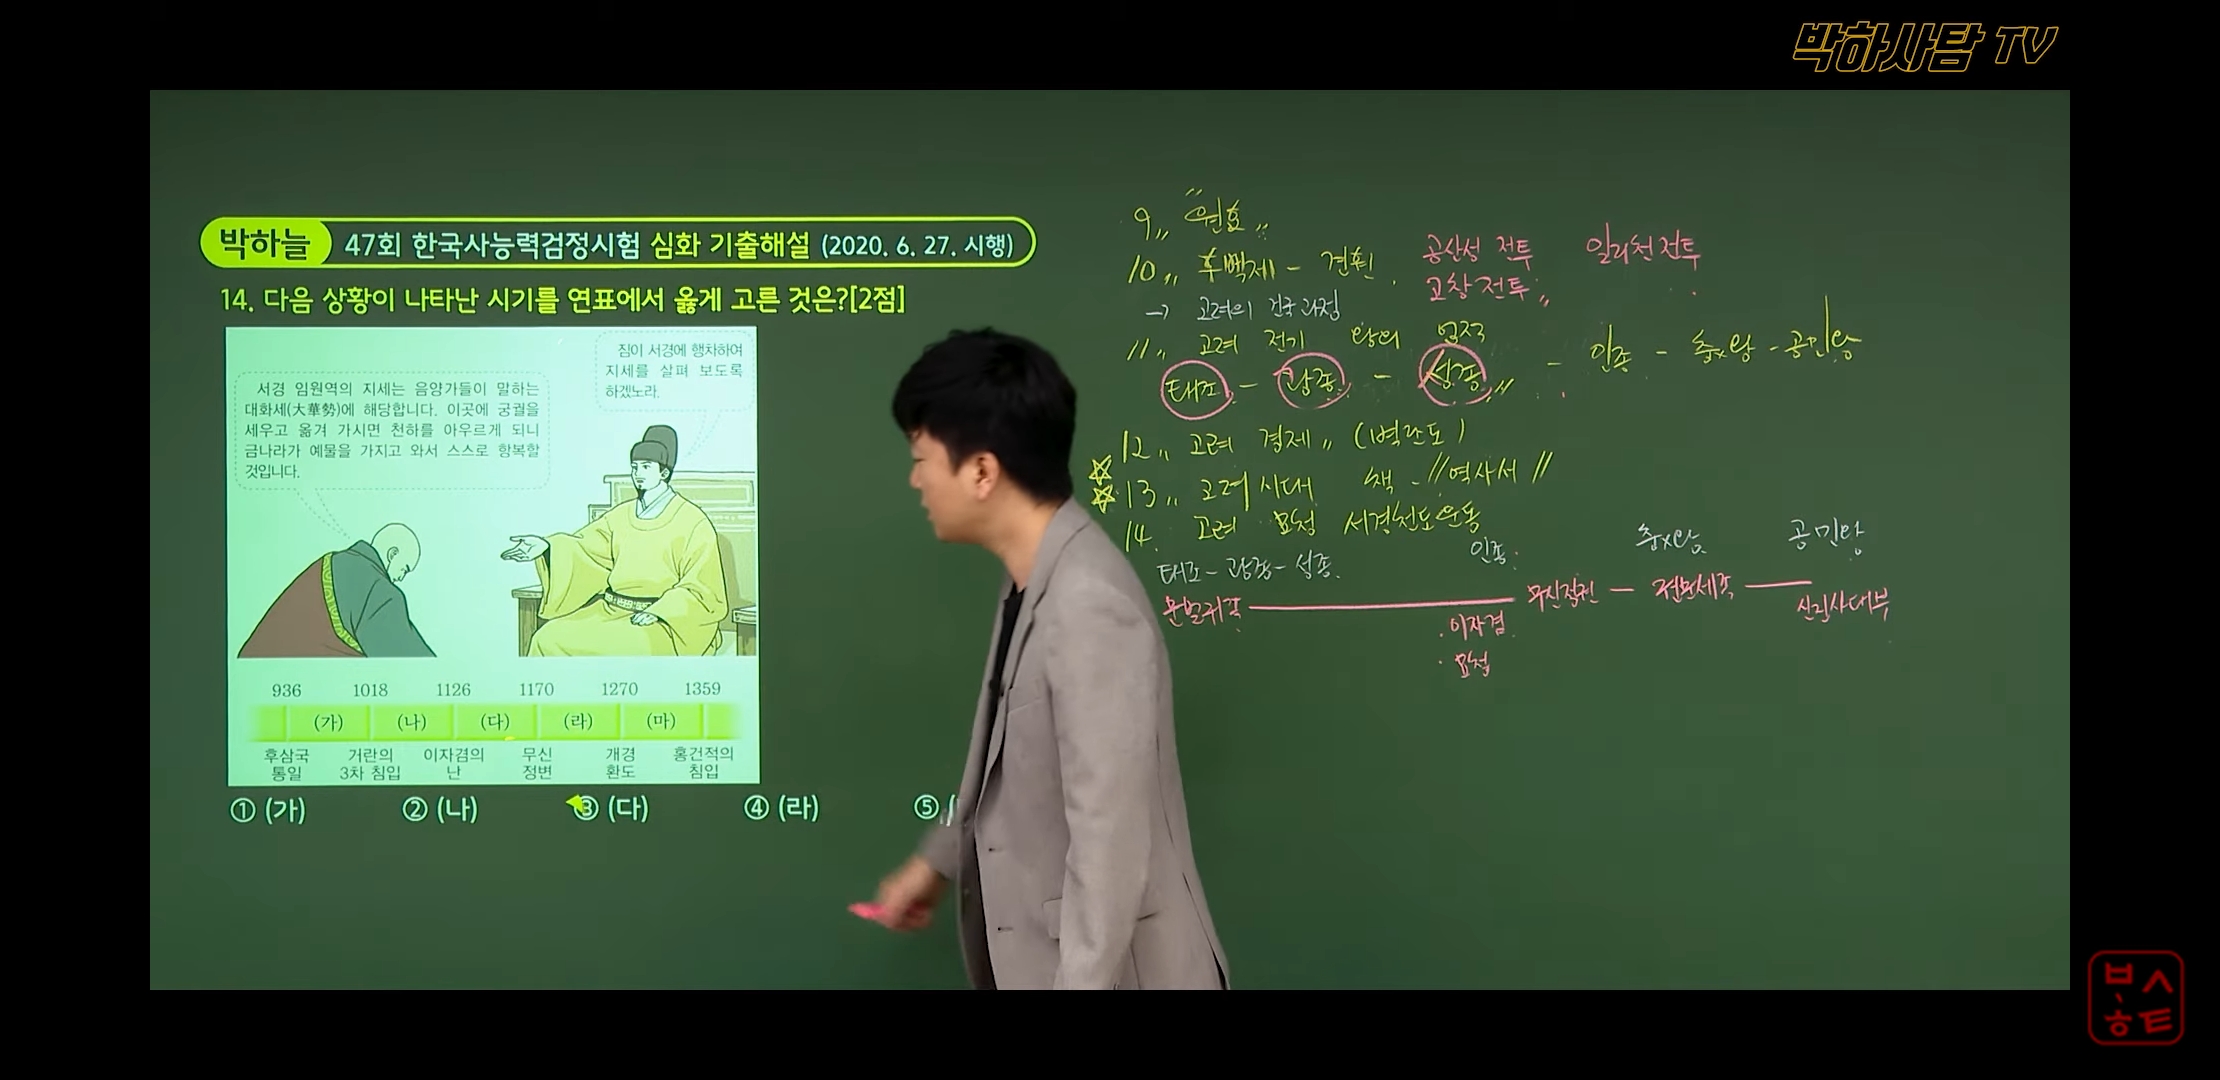 박하사탐 TV
박하늘 47회 한국사능력검정시험 심화 기출해설 (2020. 6. 27. 시행)
14. 다음 상황이 나타난 시기를 연표에서 옳게 고른 것은?[2점]
서경 임원역의 지세는 음양가들이 말하는
대화세(大華勢)에 해당합니다. 이곳에 궁궐을
세우고 옮겨 가시면 천하를 아우르게 되니
금나라가 예물을 가지고 와서 스스로 항복할
것입니다.
짐이 서경에 행차하여
지세를 살펴 보도록
하겠노라.
936 1018 1126 1170 1270 1359
(가) (나) (다) (라) (마)
후삼국 거란의 이자겸의 무신 개경 홍건적의
통일 3차 침입 난 정변 환도 침입
① (가) ② (나) ③ (다) ④ (라) ⑤
9〃 "원효〃
10〃 후백제 - 견훤 공산성 전투 일리천전투
→ 고려의 건국과정 고창전투〃
11〃 고려 전기 왕의 업적
태조 - 광종 - 성종〃 - 인종 - 충x왕 - 공민왕
12〃 고려 경제〃 (벽란도)
☆☆ 13〃 고려시대 책 - //역사서//
14. 고려 묘청 서경천도운동
태조 - 광종 - 성종 인종 충x왕 공민왕
문벌귀족 무신집권 - 권문세족 신진사대부
· 이자겸
· 묘청
박하사탐